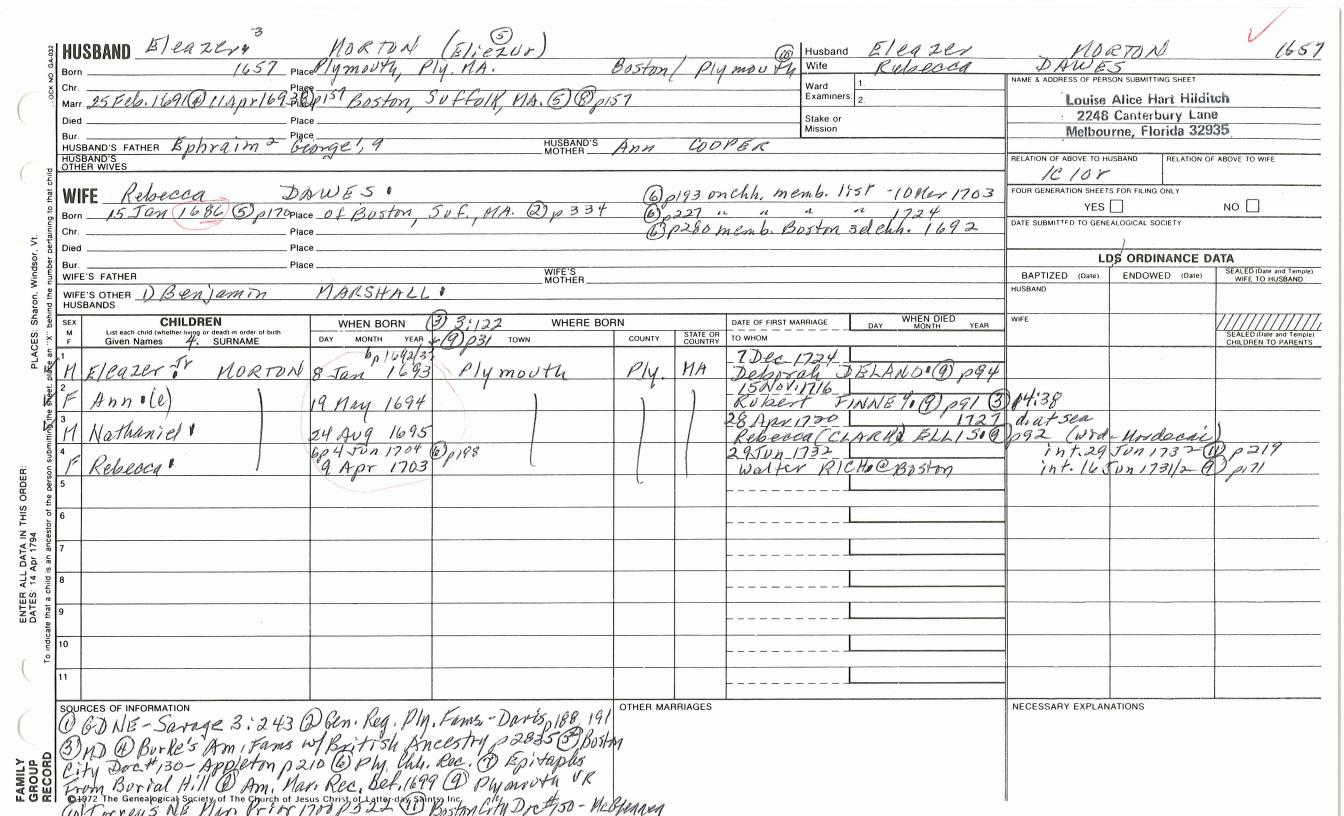 HUSBAND Eleazer 3 MORTON (Eliezur) ⑤
Born 1657 Place Plymouth, Ply. MA. Boston/Plymouth ⑩
Chr. Place
Marr. 25 Feb. 1691 ④ 11 Apr 1693 p157 Boston, Suffolk, MA. ⑤ ⑧ p157
Died Place
Bur. Place
HUSBAND'S FATHER Ephraim 2 George 1, 9 HUSBAND'S MOTHER Ann COOPER
HUSBAND'S OTHER WIVES
Husband Eleazer MORTON 1657
Wife Rebecca DAWES
Ward Examiners: 1.
2.
Stake or Mission
NAME & ADDRESS OF PERSON SUBMITTING SHEET
Louise Alice Hart Hilditch
2248 Canterbury Lane
Melbourne, Florida 32935
RELATION OF ABOVE TO HUSBAND RELATION OF ABOVE TO WIFE
1C 10r
FOUR GENERATION SHEETS FOR FILING ONLY
YES NO
DATE SUBMITTED TO GENEALOGICAL SOCIETY
WIFE Rebecca DAWES
⑥ p193 on chh. memb. list - 10 Mar 1703
Born 15 Jan 1686 ⑤ p170 Place of Boston, Suf., MA. ② p334
⑥ p227 " " " " 1724
Chr. Place
⑥ p280 memb. Boston 3d chh. 1692
Died Place
Bur. Place
WIFE'S FATHER WIFE'S MOTHER
WIFE'S OTHER HUSBANDS D Benjamin MARSHALL
LDS ORDINANCE DATA
BAPTIZED (Date) ENDOWED (Date) SEALED (Date and Temple) WIFE TO HUSBAND
HUSBAND
WIFE
SEALED (Date and Temple) CHILDREN TO PARENTS
SEX M F
CHILDREN
List each child (whether living or dead) in order of birth
Given Names 4. SURNAME
WHEN BORN ③ 3:122 WHERE BORN
DAY MONTH YEAR + ⑨ p31 TOWN COUNTY STATE OR COUNTRY
DATE OF FIRST MARRIAGE
TO WHOM
WHEN DIED
DAY MONTH YEAR
1 M Eleazer Jr MORTON bp 1692/3 8 Jan 1693 Plymouth Ply. MA 7 Dec 1724 Deborah DELANO ⑨ p94
2 F Ann(e) 19 May 1694 15 Nov. 1716 Robert FINNEY ⑨ p91 ③ p4:38
3 M Nathaniel 24 Aug 1695 28 Apr 1720 1727 d. at sea Rebecca (CLARK) ELLIS ⑨ p92 (wid-Mordecai)
4 F Rebecca bp 4 Jun 1704 ⑥ p198 9 Apr 1703 29 Jun 1732 Walter RICH @ Boston int. 29 Jun 1732 ⑪ p219
int. 16 Jun 1731/2 ⑨ p171
5
6
7
8
9
10
11
SOURCES OF INFORMATION
① GDNE-Savage 3:243 ② Gen. Reg. Ply. Fams.-Davis p188, 191
③ MD ④ Burke's Am. Fams w/ British Ancestry p2835 ⑤ Boston
City Doc #130-Appleton p210 ⑥ Ply. Chh. Rec. ⑦ Epitaphs
From Burial Hill ⑧ Am. Mar. Rec. Bef. 1699 ⑨ Plymouth VR
©1972 The Genealogical Society of The Church of Jesus Christ of Latter-day Saints, Inc.
⑩ Torrey's NE Mar. Prior 1700 p522 ⑪ Boston City Doc #150-
OTHER MARRIAGES
NECESSARY EXPLANATIONS
PLACES: Sharon, Windsor, Vt.
ENTER ALL DATA IN THIS ORDER:
DATES: 14 Apr 1794
To indicate that a child is an ancestor of the person submitting the sheet, place an "X" behind the number pertaining to that child
FAMILY GROUP RECORD